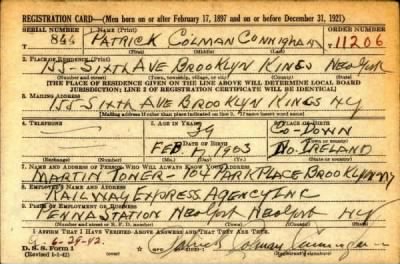 REGISTRATION CARD—(Men born on or after February 17, 1897 and on or before December 31, 1921)
SERIAL NUMBER 1. NAME (Print) ORDER NUMBER
844 PATRICK COLMAN CUNNIGHAM 11206
(First) (Middle) (Last)
2. PLACE OF RESIDENCE (Print)
155-SIXTH AVE BROOKLYN KINGS NEW YORK
(Number and street) (Town, township, village, or city) (County) (State)
[THE PLACE OF RESIDENCE GIVEN ON THE LINE ABOVE WILL DETERMINE LOCAL BOARD
JURISDICTION; LINE 2 OF REGISTRATION CERTIFICATE WILL BE IDENTICAL]
3. MAILING ADDRESS
155-SIXTH AVE BROOKLYN KINGS NY
[Mailing address if other than place indicated on line 2. If same insert word same]
4. TELEPHONE 5. AGE IN YEARS 6. PLACE OF BIRTH
39 CO-DOWN
DATE OF BIRTH (Town or county)
FEB 1903 NO. IRELAND
(Exchange) (Number) (Mo.) (Day) (Yr.) (State or country)
7. NAME AND ADDRESS OF PERSON WHO WILL ALWAYS KNOW YOUR ADDRESS
MARTIN TONER-104 PARK PLACE BROOKLYN NY
8. EMPLOYER'S NAME AND ADDRESS
RAILWAY EXPRESS AGENCY INC
9. PLACE OF EMPLOYMENT OR BUSINESS
PENNA STATION NEW YORK NEW YORK NY
(Number and street or R. F. D. number) (Town) (County) (State)
I AFFIRM THAT I HAVE VERIFIED ABOVE ANSWERS AND THAT THEY ARE TRUE.
6-29-42. Patrick Colman Cunnigham
D. S. S. Form 1
(Revised 1-1-42) (over)